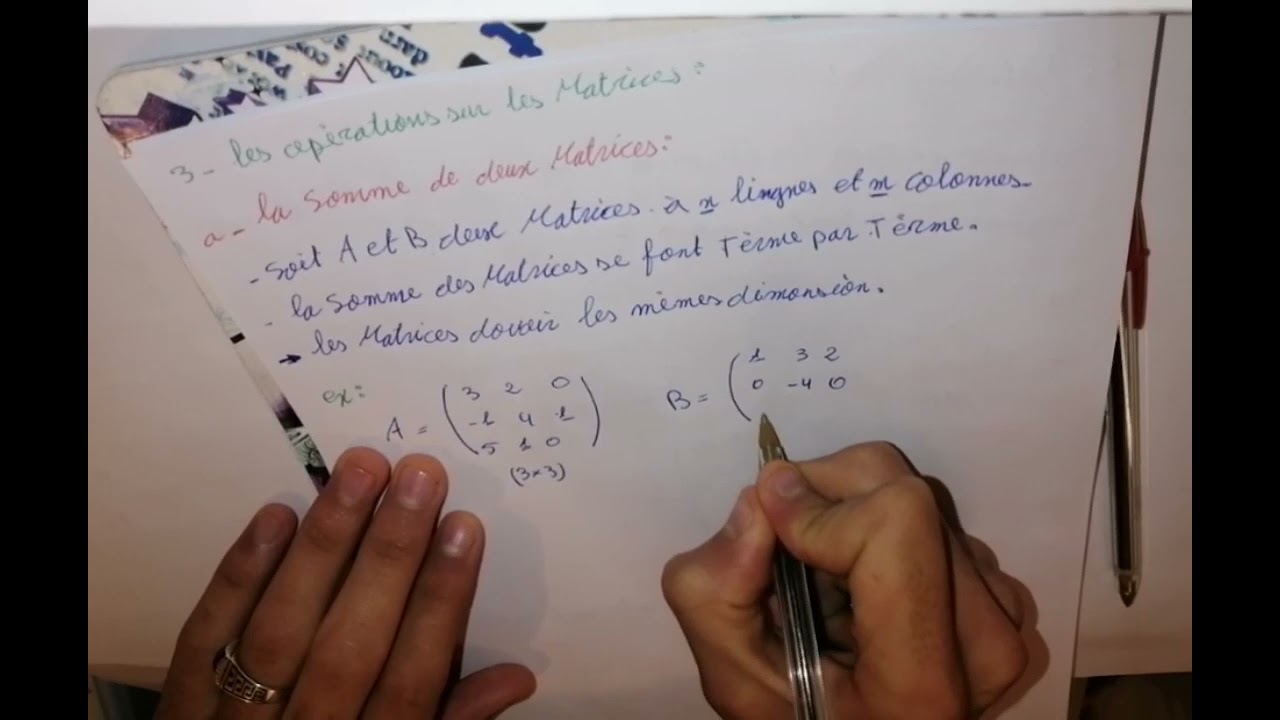 3 - les opérations sur les Matrices:
a - la Somme de deux Matrices:
- Soit A et B deux Matrices à n lingnes et m colonnes.
- la Somme des Matrices se font Tèrme par Tèrme.
→ les Matrices douvir les mêmes dimonsiòn.
ex:
A = ( 3 2 0
-1 4 1
5 1 0 )
(3×3)
B = ( 1 3 2
0 -4 0